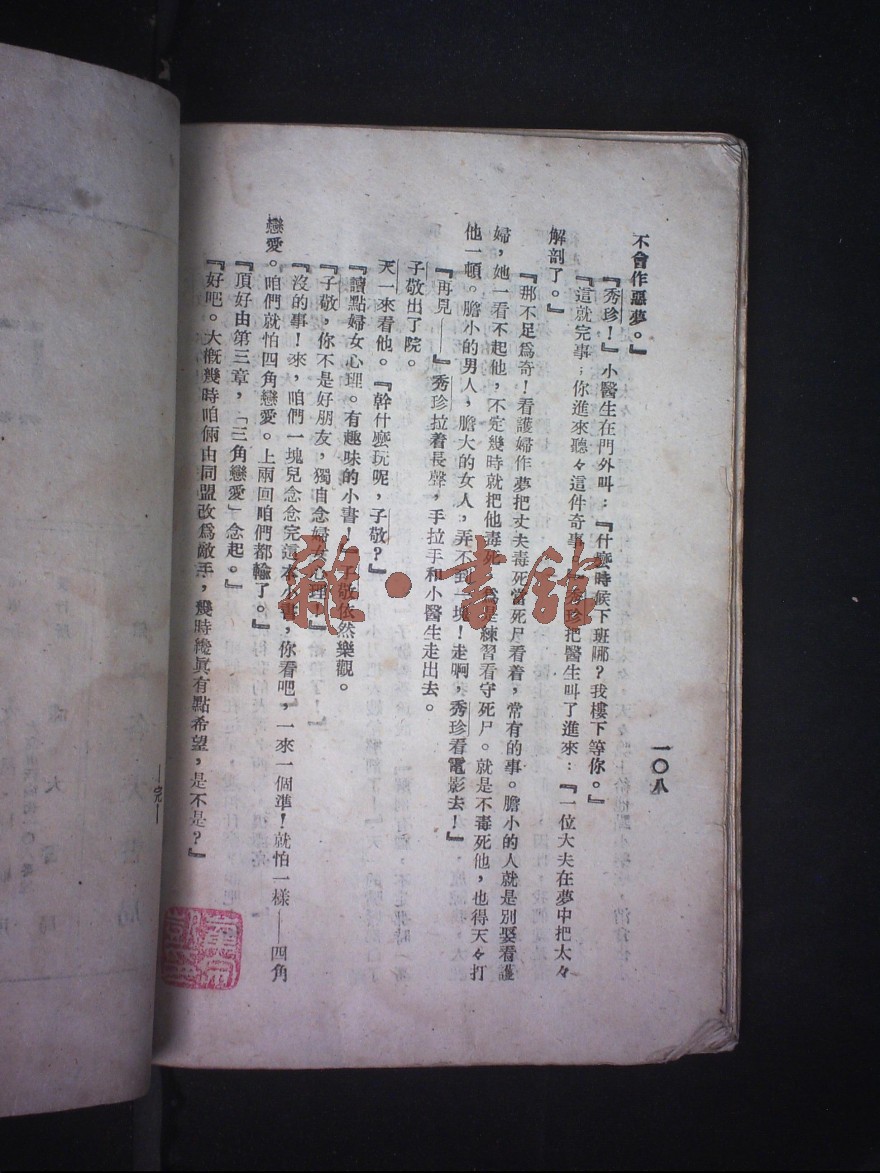 一〇八
不會作惡夢。』
『秀珍！』小醫生在門外叫：『什麼時候下班哪？我樓下等你。』
『這就完事；你進來聽々這件奇事。』秀珍把醫生叫了進來：『一位大夫在夢中把太々
解剖了。』
『那不足爲奇！看護婦作夢把丈夫毒死當死尸看着，常有的事。膽小的人就是別娶看護
婦，她一看不起他，不定幾時就把他毒死，爲是練習看守死尸。就是不毒死他，也得天々打
他一頓。膽小的男人，膽大的女人，弄不到一塊！走啊，秀珍看電影去！』
『再見——』秀珍拉着長聲，手拉手和小醫生走出去。
子敬出了院。
天一來看他。『幹什麼玩呢，子敬？』
『讀點婦女心理。有趣味的小書！』子敬依然樂觀。
『子敬，你不是好朋友，獨自念婦女心理！』
『沒的事！來，咱們一塊兒念念完這本小書，你看吧，一來一個準！就怕一樣——四角
戀愛。咱們就怕四角戀愛。上兩回咱們都輸了。』
『頂好由第三章，「三角戀愛」念起。』
『好吧。大概幾時咱倆由同盟改爲敵手，幾時纔眞有點希望，是不是？』
—完—
雜·書館